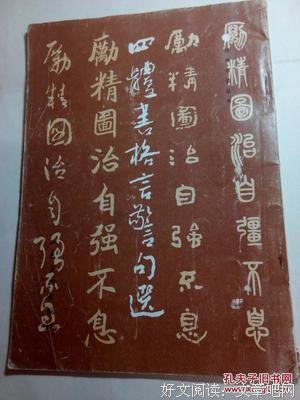 勵精圖治自彊不息
勵精圖治自強不息
四體書格言警句選
勵精圖治自强不息
励精图治自强不息
孔夫子旧书网
好文阅读: